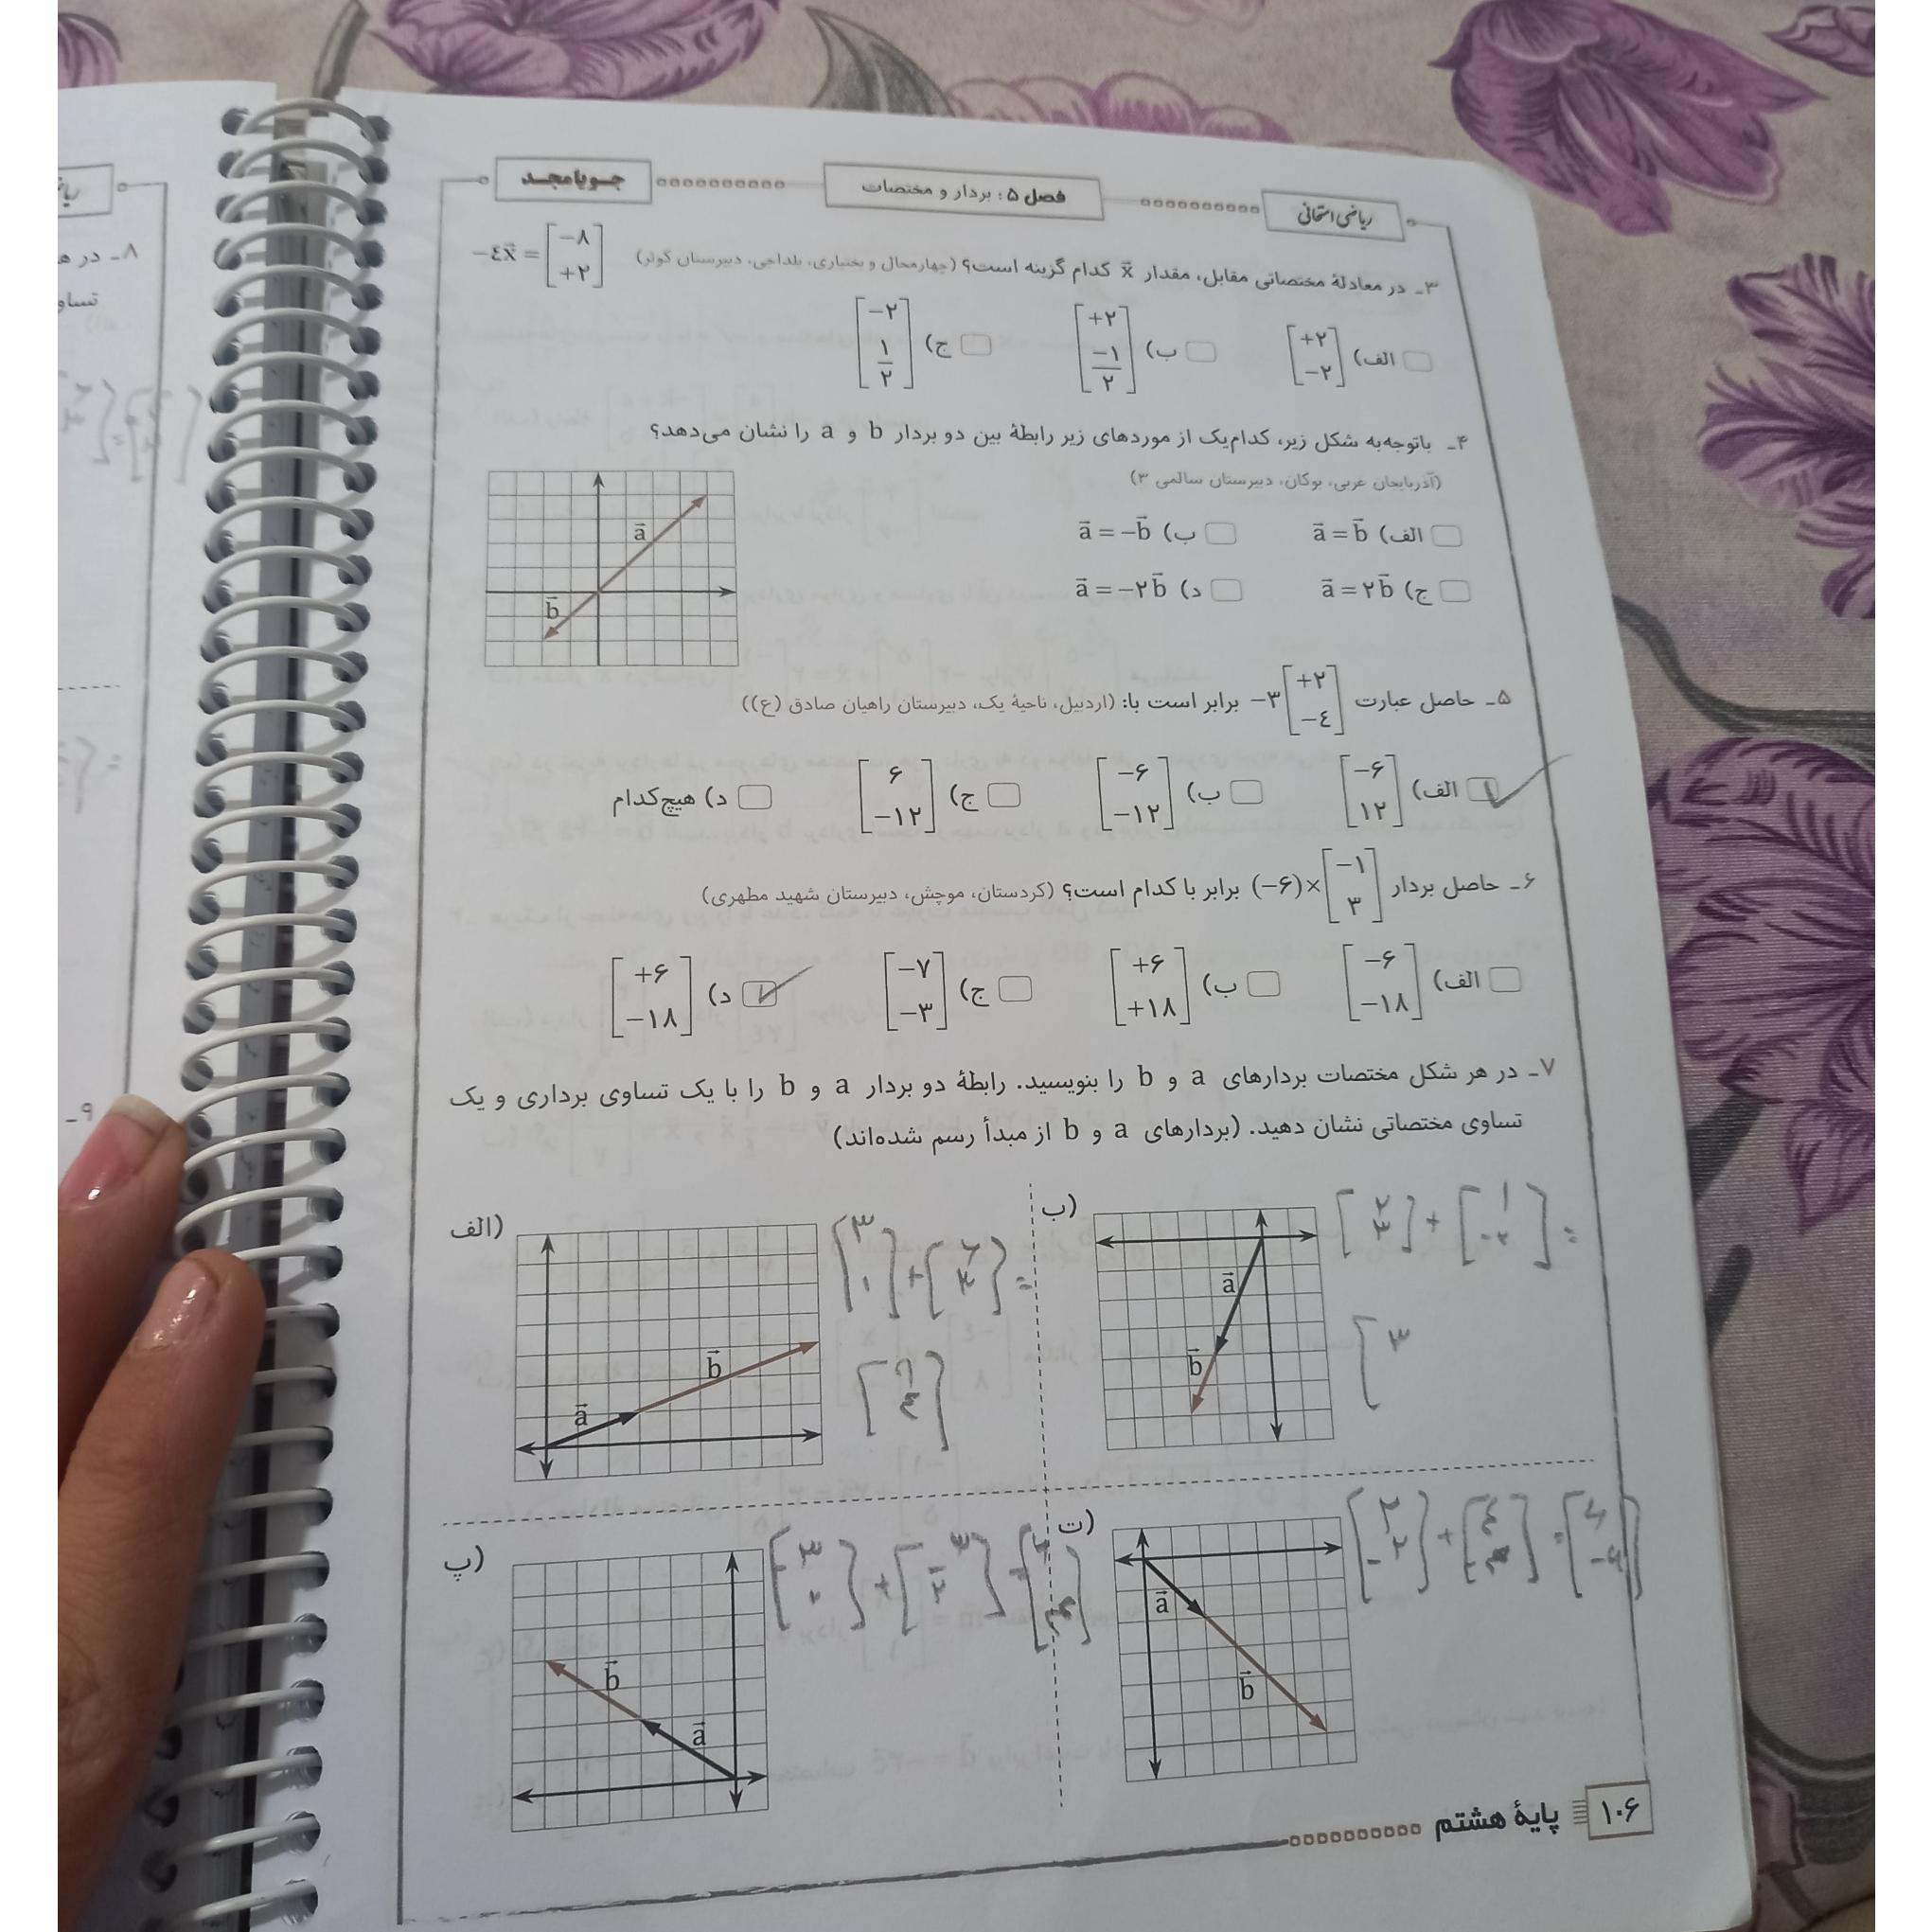 ریاضی امتحانی
فصل ۵: بردار و مختصات
جویا مجد
۳ـ در معادلهٔ مختصاتی مقابل، مقدار x⃗ کدام گزینه است؟ (چهارمحال و بختیاری، بلداجی، دبیرستان کوثر) −٤x⃗ = [−۸ +۲]
الف) [+۲ −۲] ب) [+۲ −۱/۲] ج) [−۲ ۱/۲]
۴ـ باتوجه‌به شکل زیر، کدام‌یک از موردهای زیر رابطهٔ بین دو بردار b و a را نشان می‌دهد؟
(آذربایجان غربی، بوکان، دبیرستان سالمی ۳)
الف) a⃗ = b⃗ ب) a⃗ = −b⃗
ج) a⃗ = ۲b⃗ د) a⃗ = −۲b⃗
a⃗
b⃗
۵ـ حاصل عبارت −۳[+۲ −٤] برابر است با: (اردبیل، ناحیهٔ یک، دبیرستان راهیان صادق (ع))
الف) [−۶ ۱۲] ب) [−۶ −۱۲] ج) [۶ −۱۲] د) هیچ‌کدام
۶ـ حاصل بردار (−۶)×[−۱ ۳] برابر با کدام است؟ (کردستان، موچش، دبیرستان شهید مطهری)
الف) [−۶ −۱۸] ب) [+۶ +۱۸] ج) [−۷ −۳] د) [+۶ −۱۸]
۷ـ در هر شکل مختصات بردارهای a و b را بنویسید. رابطهٔ دو بردار a و b را با یک تساوی برداری و یک
تساوی مختصاتی نشان دهید. (بردارهای a و b از مبدأ رسم شده‌اند)
الف)
a⃗
b⃗
ب)
a⃗
b⃗
پ)
b⃗
a⃗
ت)
a⃗
b⃗
۱۰۶
پایهٔ هشتم
۸ـ در ه
تساو
۹ـ